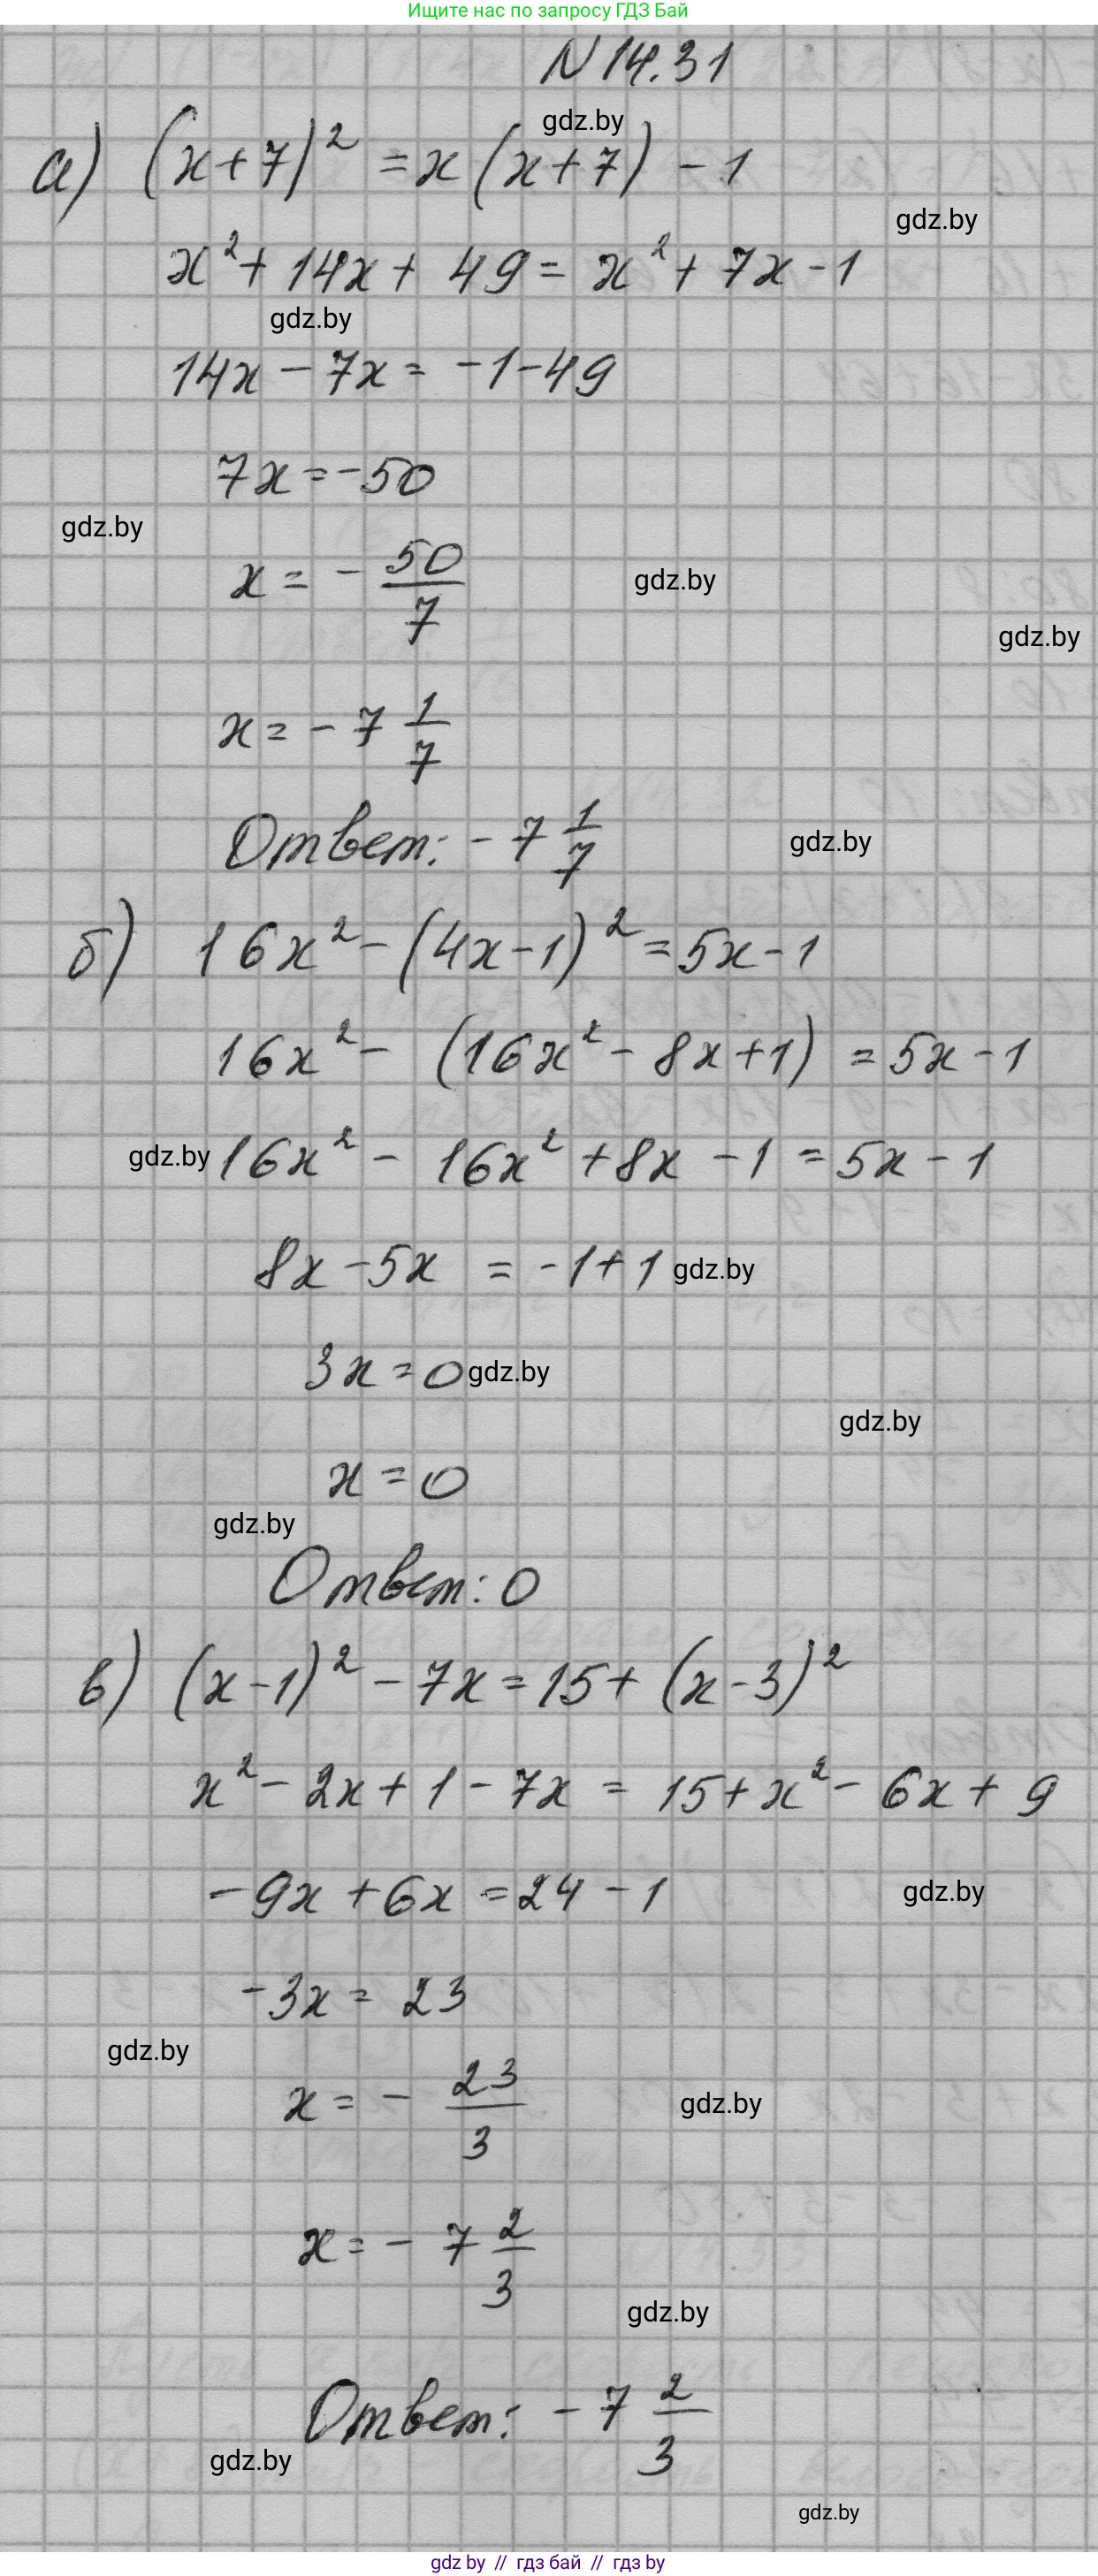 Ищите нас по запросу ГДЗ Бай
N 14.31
gdz.by
а) (x+7)² = x(x+7) - 1
gdz.by
x² + 14x + 49 = x² + 7x - 1
gdz.by
14x - 7x = -1 - 49
7x = -50
gdz.by
x = - 50/7
gdz.by
gdz.by
x = - 7 1/7
Ответ: - 7 1/7
gdz.by
б) 16x² - (4x-1)² = 5x - 1
16x² - (16x² - 8x + 1) = 5x - 1
gdz.by
16x² - 16x² + 8x - 1 = 5x - 1
8x - 5x = -1 + 1
gdz.by
3x = 0
gdz.by
gdz.by
x = 0
gdz.by
Ответ: 0
в) (x-1)² - 7x = 15 + (x-3)²
x² - 2x + 1 - 7x = 15 + x² - 6x + 9
-9x + 6x = 24 - 1
gdz.by
-3x = 23
gdz.by
x = - 23/3
gdz.by
x = - 7 2/3
gdz.by
Ответ: - 7 2/3
gdz.by
gdz.by
gdz by // гдз бай // гдз by